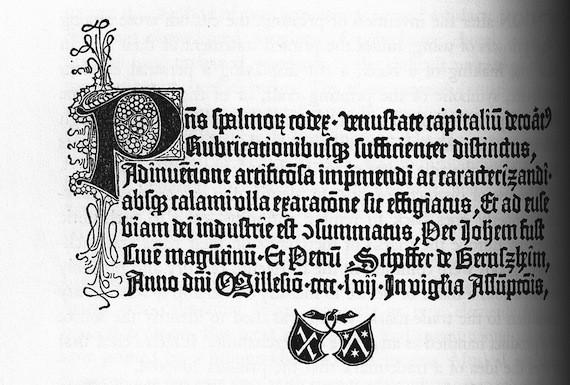 Pñs ſpalmoꝝ codex · venuſtate capitaliū decoāt⁹
Rubricationibuſqꝫ ſufficienter diſtinctus,
Adinuētione artificōſa imp̄mendi ac caracterizandi ·
abſqꝫ calami vlla exaracōne ſic effigiatus, Et ad euſe
biam dei induſtrie eſt ꝯſummatus, Per Joh̄em fuſt
Ciuē magūtinū · Et Petrū Schoffer de Gernſzheim,
Anno dn̄i Milleſiō · cccc · lvij · In vigl̓ia Aſſūpcōis,